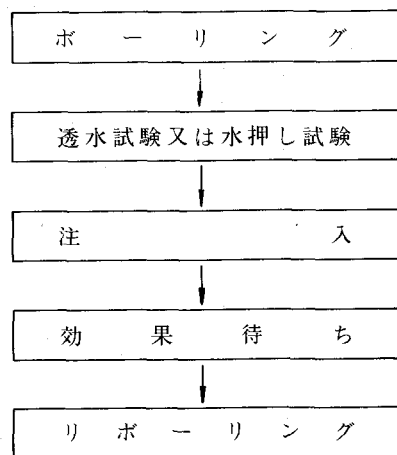 ボーリング
透水試験又は水押し試験
注入
効果待ち
リボーリング